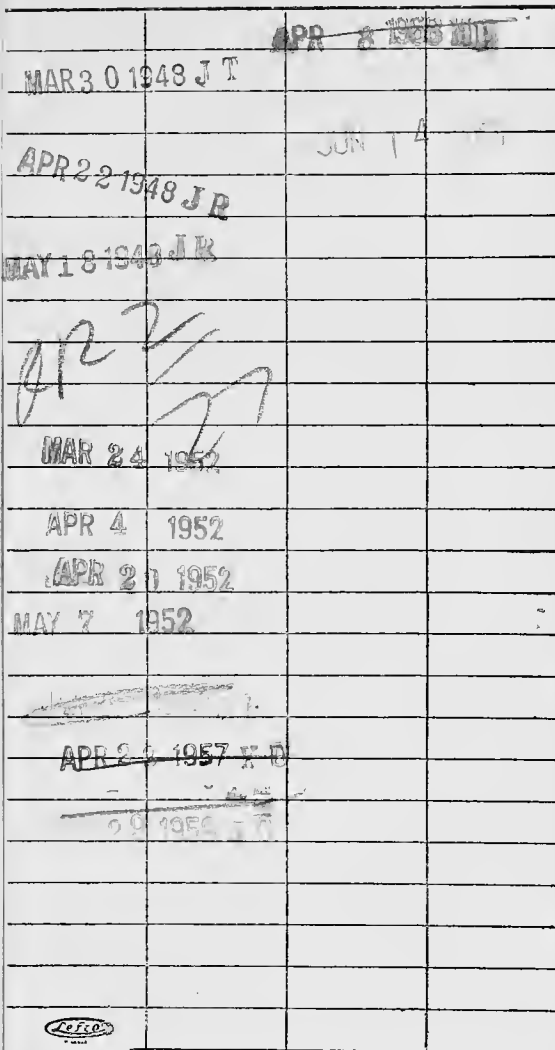 MAR 30 1948 J T
APR 22 1948 J R
MAY 18 1948 J R
MAR 24 1952
APR 4 1952
APR 20 1952
MAY 7 1952
APR 22 1957 H D
29 195
APR 8
JUN 14
Lefco